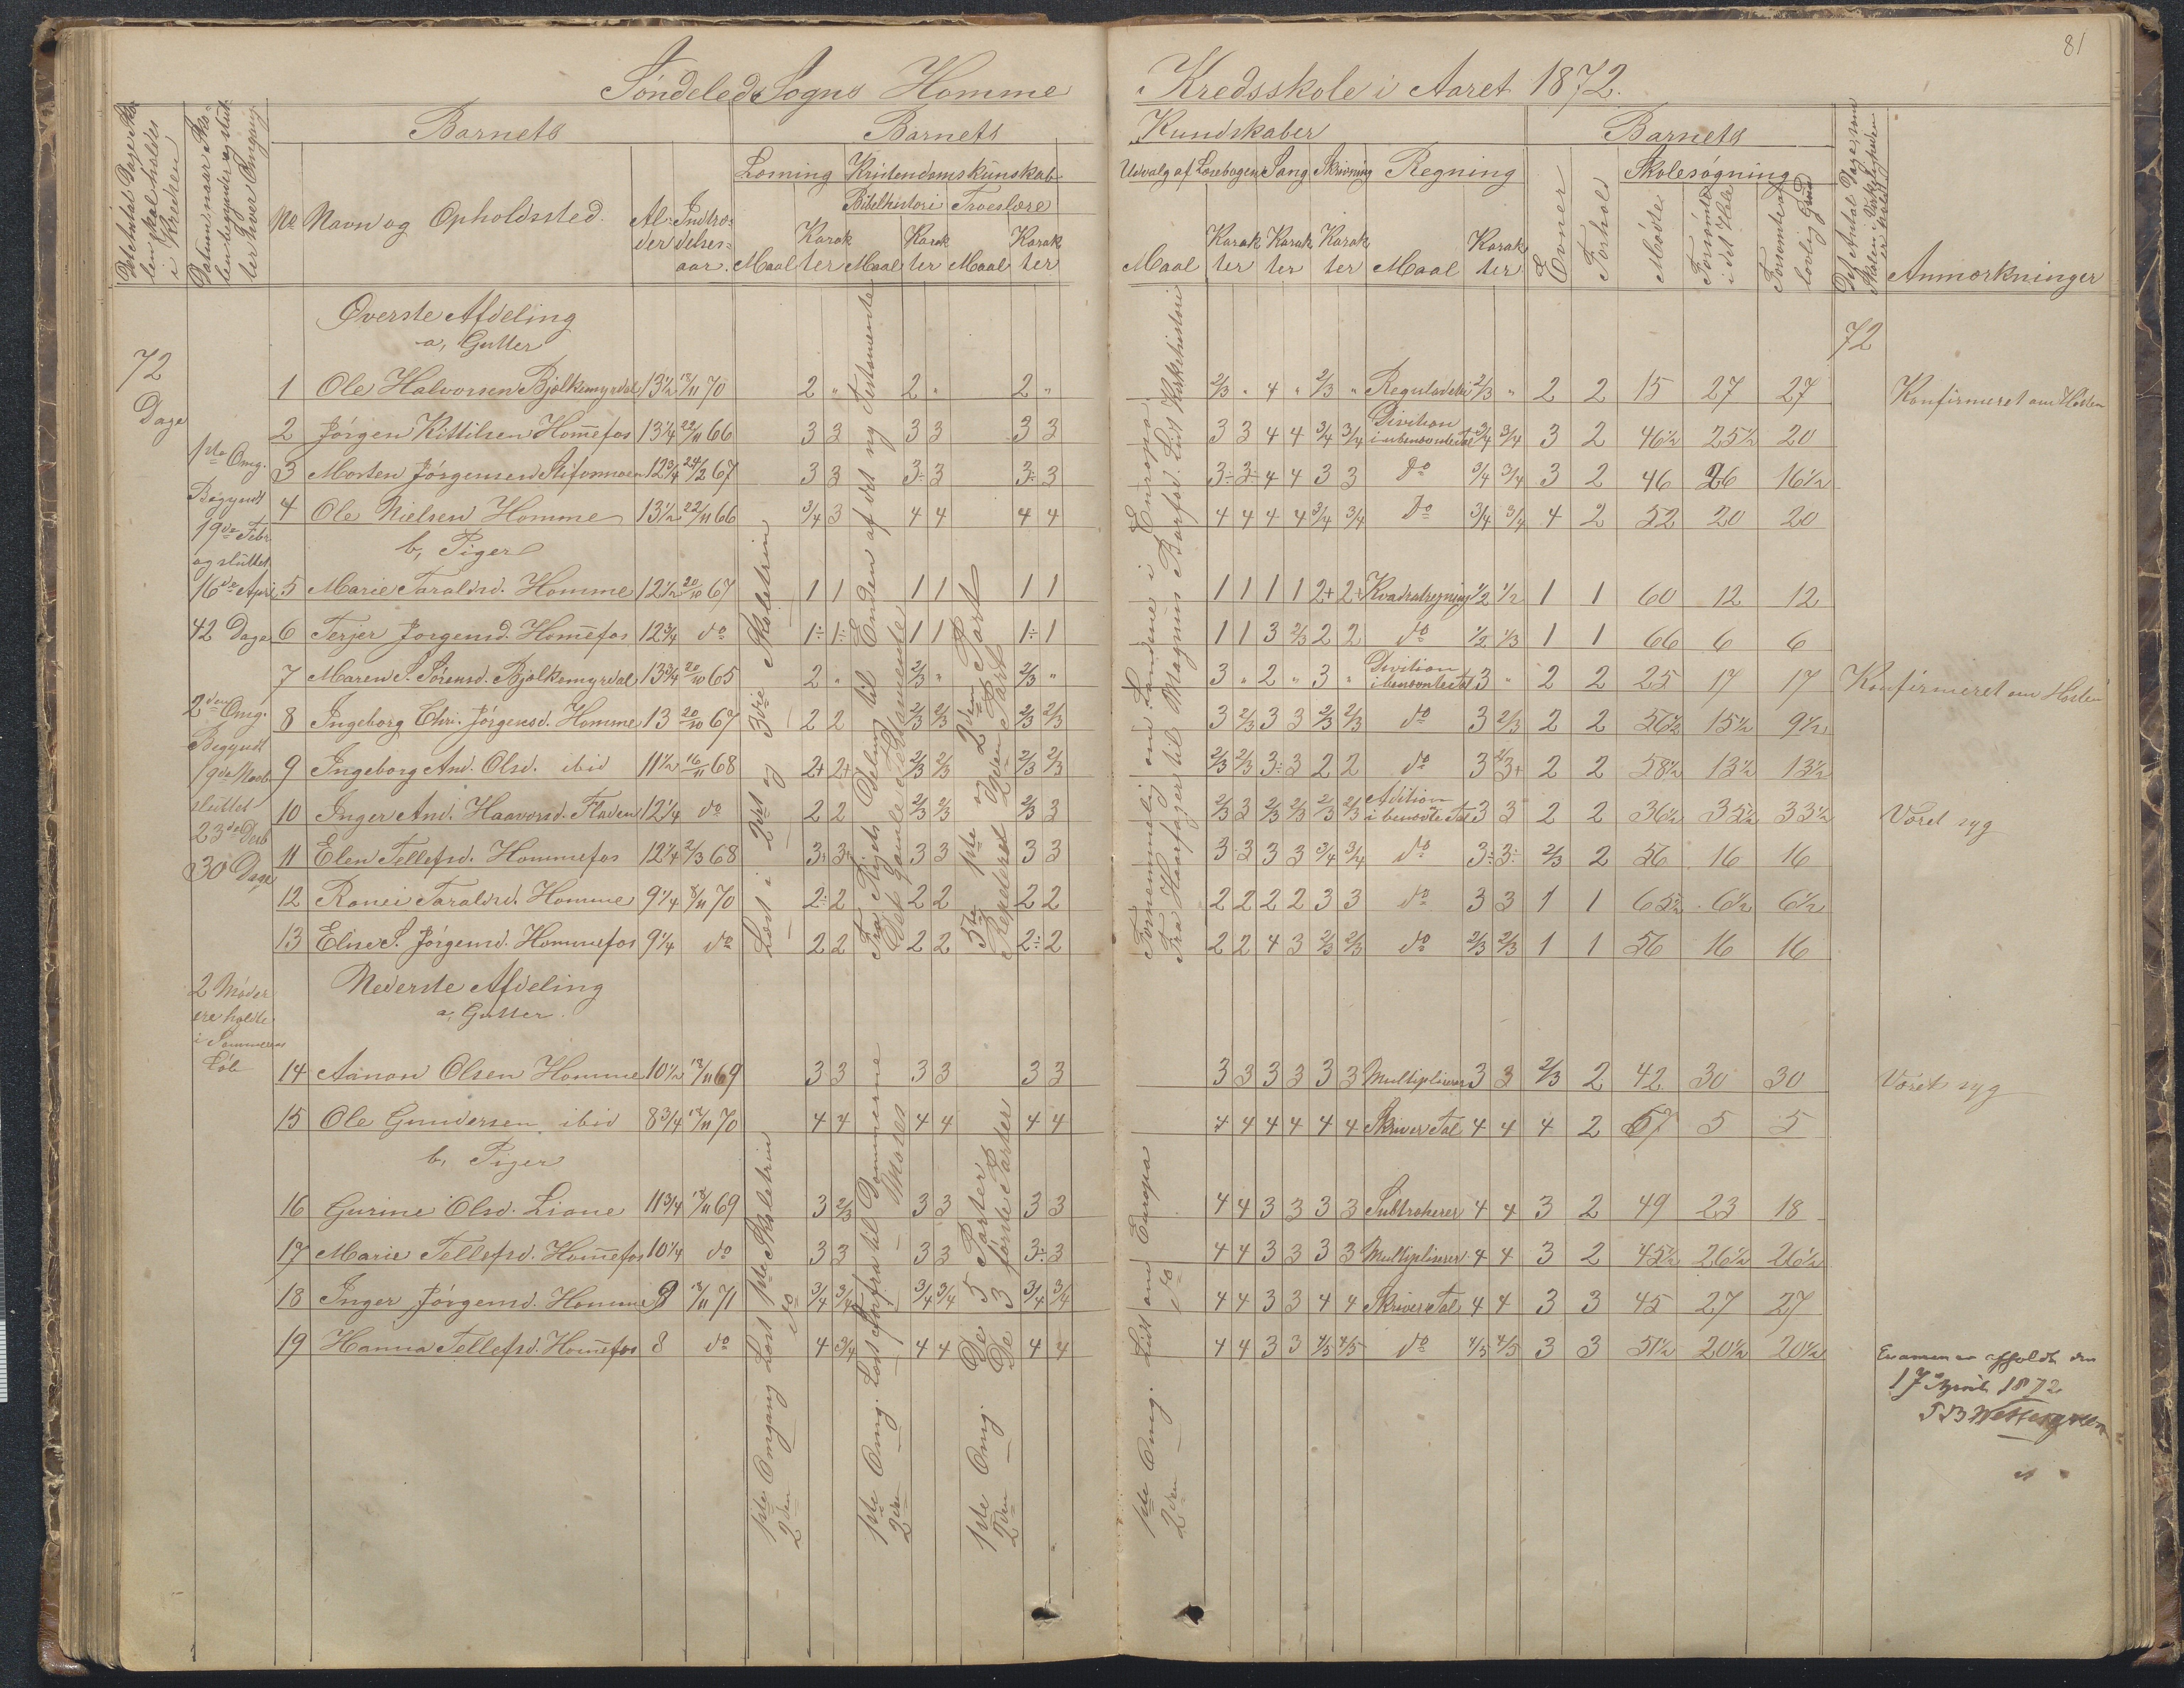 81
Søndeleds Sogns Homme Kredsskole i Aaret 1872.
Barnets Barnets Kundskaber Barnets
Læsning Kristendomskunskab Udvalg af Læsebogen Sang Skrivning Regning Skolesøgning
Bibelhistori Troeslære
No Navn og Opholdssted. Al- der Indtræ- delses- aar. Maal Karak ter Maal Karak ter Maal Karak ter Maal Karak ter Karak ter Karak ter Maal Karak ter Evner Forhold Mødte Forsømte i det Hele Forsømte af lovlig Grund Anmærkninger
Det Antal Dage Sko- len skal holdes i Kredsen
Datum naar Sko- len begynder og slut- ter hver Omgang
Det Antal Dage, som Skolen i Virkeligheden er holdt
Øverste Afdeling
a, Gutter
72 Dage
72
1 Ole Halvorsen Bjelkemyrdal 13½ 18/11 70 2 " 2 " 2 " 2/3 " 4 " 2/3 " Reguladetri 2/3 " 2 2 15 27 27 Konfirmeret om Høsten
2 Jørgen Kittilsen Hom̅efos 13¼ 22/11 66 3 3 3 3 3 3 3 3 4 4 3/4 3/4 Division i ubenævnte Tal 3/4 3/4 3 2 46½ 25½ 20
1ste Omg.
3 Morten Jørgensen Stifosmoen 12¾ 24/2 67 3 3 3÷ 3 3÷ 3 3÷ 3÷ 4 4 3 3 do 3/4 3/4 3 2 46 26 16½
Begyndt
4 Ole Nielsen Homme 13½ 22/11 66 3/4 3 4 4 4 4 4 4 4 4 3/4 3/4 do 3/4 3/4 4 2 52 20 20
19de Febr
b, Piger
og sluttet
16de April
5 Marie Taraldsd. Homme 12½ 20/10 67 1 1 1 1 1 1 1 1 1 1 2+ 2+ Kvadratregning 1/2 1/2 1 1 60 12 12
42 Dage
6 Terjer Jørgensd. Hom̅efos 12¾ do 1÷ 1÷ 1 1 1÷ 1 1 1 3 2/3 2 2 do 1/2 1/3 1 1 66 6 6
7 Maren S. Sørensd. Bjelkemyrdal 13¾ 20/10 65 2 " 2/3 " 2/3 " 3 " 2 " 3 " Division i benævnte Tal 3 " 2 2 25 17 17 Konfirmeret om Høsten
2den Omg.
8 Ingeborg Chri. Jørgensd. Homme 13 20/10 67 2 2 2/3 2/3 2/3 2/3 3 2/3 3 3 2/3 2/3 do 3 2/3 2 2 56½ 15½ 9½
Begyndt
9 Ingeborg And. Olsd. ibid 11½ 16/11 68 2+ 2+ 2/3 2/3 2/3 2/3 2/3 2/3 3÷ 3 2 2 do 3 2/3+ 2 2 58½ 13½ 13½
19de Novb
sluttet
10 Inger And. Haavorsd. Fladen 12¼ do 2 2 2/3 2/3 2/3 3 2/3 3 2/3 2/3 2/3 2/3 Adition i benævnte Tal 3 3 2 2 36½ 35½ 33½ Været syg
23de Desb
11 Elen Tellefsd. Hommefos 12¼ 2/3 68 3+ 3+ 3 3 3 3 3 3 3 3 3/4 3/4 do 3÷ 3÷ 2/3 2 56 16 16
30 Dage
12 Ranei Taraldsd. Homme 9¼ 8/11 70 2÷ 2 2 2 2 2 2 2 2 2 3 3 do 3 3 1 1 65½ 6½ 6½
13 Elise S. Jørgensd. Hommefos 9¼ do 2 2 2 2 2÷ 2 2 2 4 3 2/3 2/3 do 2/3 2/3 1 1 56 16 16
Læst i 2det og 3die Skoletrin
Fra Rigets Deling til Enden af det ny Testamente
Det gamle Testamente
5te 1ste og 2den Part
Repeteret 2den Part
Fornemmelig om Landene i Europa.
Fra Haarfager til Magnus Barfod. Lidt Kirkehistori
2 Møder ere holdte i Sommerens Løb
Nederste Afdeling
a, Gutter.
14 Aanon Olsen Homme 10½ 18/11 69 3 3 3 3 3 3 3 3 3 3 3 3 Multiplicerer 3 3 2/3 2 42 30 30 Været syg
15 Ole Gundersen ibid 8¾ 18/11 70 4 4 4 4 4 4 4 4 4 4 4 4 Skriver Tal 4 4 4 2 67 5 5
b, Piger
16 Gurine Olsd. Liane 11¾ 18/11 69 3 2/3 3 3 3 3 4 4 3 3 3 3 Subtraherer 4 4 3 2 49 23 18
17 Marie Tellefsd. Hom̅efos 10¼ do 3 3 3 3 3÷ 3 4 4 3 3 3 3 Multiplicerer 4 4 3 2 45½ 26½ 26½
18 Inger Jørgensd. Homme 9 18/11 71 3/4 3/4 3/4 3/4 3/4 3/4 4 4 3 3 4 4 Skriver Tal 4 4 3 3 45 27 27
19 Hanna Tellefsd. Hom̅efos 8 do 4 3/4 4 4 4 4 4 4 3 3 4/5 4/5 do 4/5 4/5 3 3 51½ 20½ 20½
1ste Omgang Læst 1ste Skoletrin
2den — do
1ste Omg. Læst forfra til Dommerne
2den — — Moses
1ste Omg. De 5 Parter
2den — De 3 første Parter
1ste Omg. Lidt om Europa
2den — do
Examen er afholdt den
17 April 1872